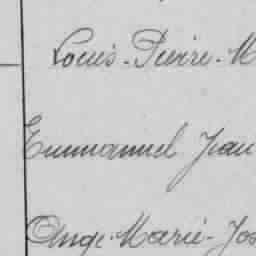 Louis-Pierre-M
Emmanuel Jean
Ange-Marie-Jos